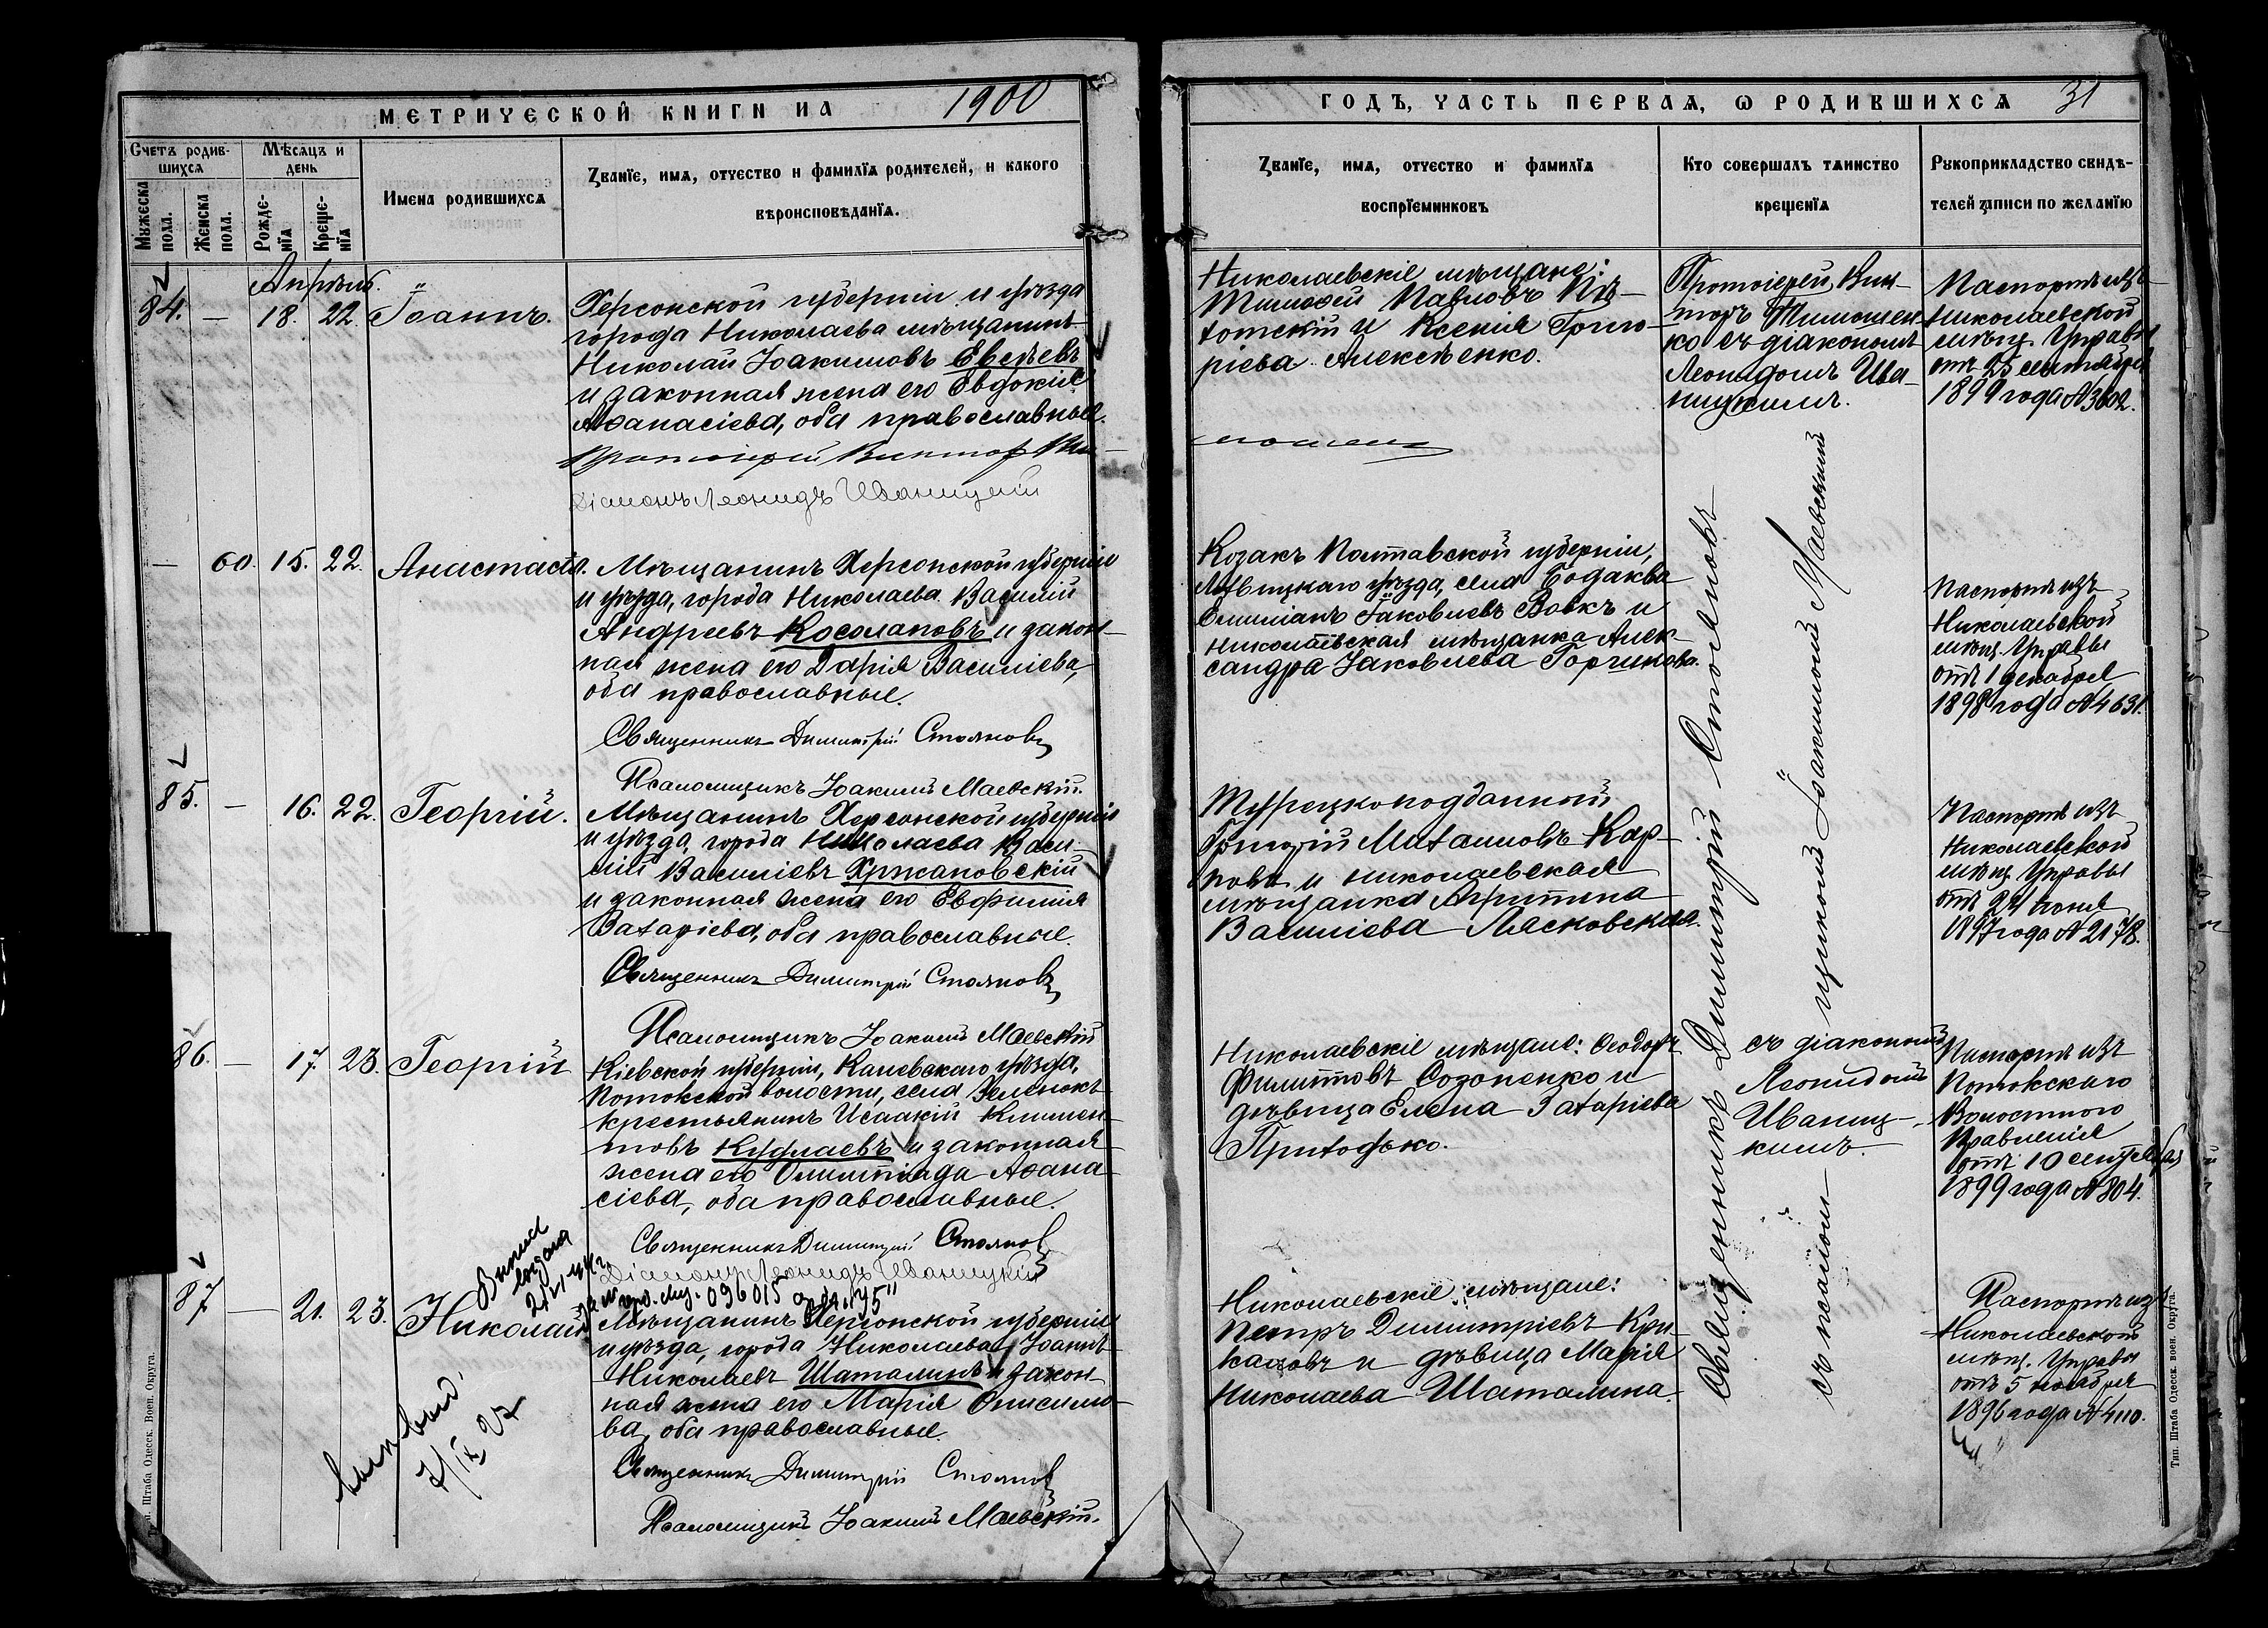 МЕТРИЧЕСКОЙ КНИГИ НА 1900
Счетъ родившихся
Мѣсяцъ и день
Мужеска пола.
Женска пола.
Рожденія
Крещенія
Имена родившихся
Званіе, имя, отчество и фамилія родителей, и какого
вѣроисповѣданія.
Апрѣль.
84. — 18. 22. Іоаннъ.
Херсонской губерніи и уѣзда
города Николаева мѣщанинъ
Николай Іоакимовъ Евсѣевъ
и законная жена его Евдокія
Аѳанасіева, оба православные.
Протоіерей Викторъ Ти-
Діаконъ Леонидъ Иваницкій
— 60. 15. 22. Анастасія.
Мѣщанинъ Херсонской губерніи
и уѣзда, города Николаева Василій
Андреевъ Косолаповъ и закон-
ная жена его Дарія Василіева,
оба православные.
Священникъ Димитрій Стояновъ
Псаломщикъ Іоакимъ Маевскій.
85. — 16. 22. Георгій.
Мѣщанинъ Херсонской губерніи
и уѣзда, города Николаева Васи-
лій Василіевъ Хржановскій
и законная жена его Евфимія
Захаріева, оба православные.
Священникъ Димитрій Стояновъ
Псаломщикъ Іоакимъ Маевскій
86. — 17. 23. Георгій
Кіевской губерніи, Каневскаго уѣзда,
Потокской волости, села Зеленокъ
крестьянинъ Исаакій Климен-
товъ Куфлаевъ и законная
жена его Олимпіада Аѳана-
сіева, оба православные.
Священникъ Димитрій Стоянов
Діаконъ Леонидъ Иваницкій
096015
87. — 21. 23. Николай
Мѣщанинъ Херсонской губерніи
и уѣзда, города Николаева Іоаннъ
Николаевъ Шаталинъ и закон-
ная жена его Марія Онисимо-
ва, оба православные.
Священникъ Димитрій Стоянов
Псаломщикъ Іоакимъ Маевскій.
7/IX 27
Тип. Штаба Одесск. Воен. Округа.
ГОДЪ, ЧАСТЬ ПЕРВАЯ, О РОДИВШИХСЯ 31
Званіе, имя, отчество и фамилія
воспріемниковъ
Кто совершалъ таинство
крещенія
Рукоприкладство свидѣ-
телей записи по желанію
Николаевскіе мѣщане:
Тимоѳей Павловъ Пѣ-
хотскій и Ксенія Григо-
ріева Алексѣенко.
мошен
Протоіерей Вик-
торъ Тимошен-
ко съ діакономъ
Леонидомъ Ива-
ницкимъ.
Паспортъ изъ
Николаевской
мѣщ. Управы
отъ 25 сентября
1899 года № 3602.
Козакъ Полтавской губерніи,
Лохвицкаго уѣзда, села Бодаква
Емиліанъ Іаковлевъ Вовкъ и
николаевская мѣщанка Алек-
сандра Іаковлева Горчинова.
Паспортъ изъ
Николаевской
мѣщ. Управы
отъ 1 декабря
1898 года № 4631.
Турецкоподданный
Григорій Михаиловъ Кар-
повъ и николаевская
мѣщанка Агрипина
Василіева Лясковская.
Паспортъ изъ
Николаевской
мѣщ. Управы
отъ 24 іюня
1897 года № 2178.
Николаевскіе мѣщане: Ѳеодоръ
Филипповъ Созоненко и
дѣвица Елена Захаріева
Приходько.
съ діакономъ
Леонидомъ
Иваниц-
кимъ.
Паспортъ изъ
Потокскаго
Волостного
Правленія
отъ 10 сентября
1899 года № 804.
Николаевскіе мѣщане:
Петръ Димитріевъ Кри-
кацовъ и дѣвица Марія
Николаева Шаталина.
Паспортъ изъ
Николаевской
мѣщ. Управы
отъ 5 ноября
1896 года № 4110.
Священникъ Димитрій Стояновъ
съ псалом-
щикомъ Іоакимомъ Маевскимъ
Тип. Штаба Одесск. воен. Округа.